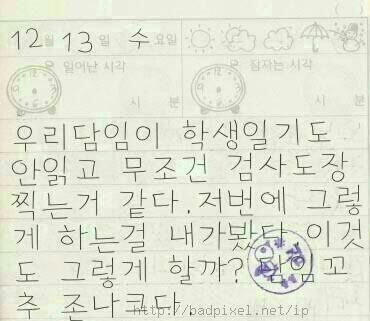 12월 13일 수요일
일어난 시각 잠자는 시각
시 분 시 분
우리담임이 학생일기도
안읽고 무조건 검사도장
찍는거 같다. 저번에 그렇
게 하는걸 내가봤다 이것
도 그렇게 할까? 담임꼬
추 존나크다
http://badpixel.net/ip